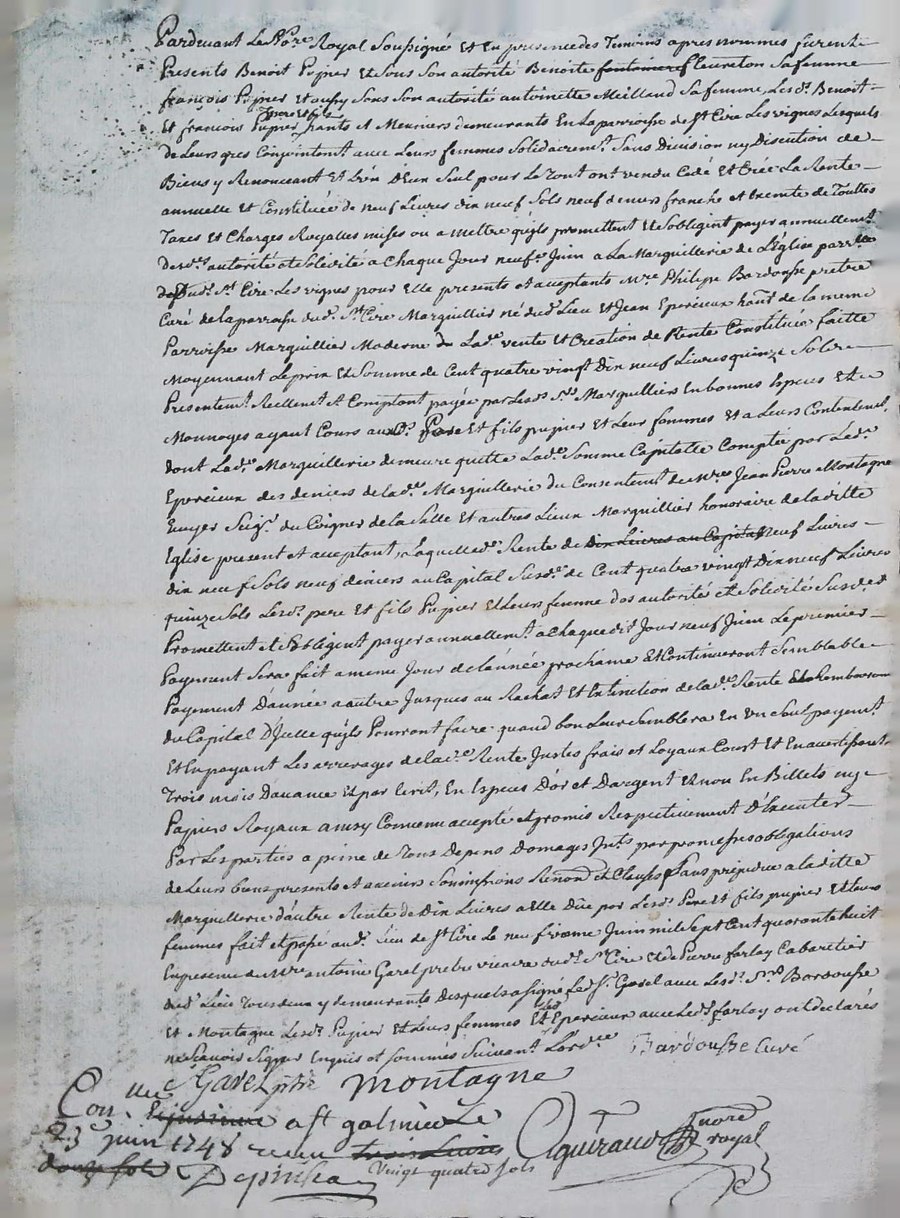 Pardevant Le No.re Royal Soussigné et En presence des Temoins apres nommés furent
Presents Benoit Pupier Et Sous Son autorité Benoite fleureton Sa femme
françois Pupier Et aussy Sous Son autorité antoinette Meilland Sa femme, Lesd. Benoit
Et francois Pupier pere et fils hants. et Meuniers demeurants En La parroisse de St Cire Les vignes Lesquels
de Leurs gres Conjointemt. avec Leurs femmes Solidairemt. Sans Division ny Discution de
Biens y Renonceant Et L'un D'eux Seul pour Le Tout ont vendu Cedé et Créé La Rente
annuelle et Constituée de neuf Livres dix neuf Sols neuf deniers franche et Exempte de Touttes
Taxes et Charges Royalles mises ou a mettre qu'ils promettent Et Sobligent payer annuellemt.
des d.es autorité et Solidité a Chaque Jour neuf.e Juin a La Marguillerie de L'Eglise parr.lle
dud. St Cire Les vignes pour Elle presents et acceptants M.re Philipe Bardousse pretre
Curé de la parroisse dud. St Cire Marguillier né dud. Lieu Et Jean Epercieux hant. de la meme
Parroisse Marguillier Moderne du Lad. vente et Creation de Rente Constituée faitte
Moyennant Le prix Et Somme de Cent quatre vingt Dix neuf Livres quinze Sols
Presentemt. Reellemt. et Comptant payée par Lesd. Srs Marguilliers En bonnes Especes Et
Monnoyes ayant Cours auxd. Pere Et fils pupier et Leur femmes Et a Leurs Contentemt.
dont Lad. Marguillerie demeure quitte Lad. Somme Capitalle Comptée par Led.
Epercieux des deniers de lad. Marguillerie du Consentemt. de M.re Jean Pierre Montagne
Ecuyer Seigr. du Coigner de la Salle Et autres Lieux Marguillier honoraire de la ditte
Eglise present et acceptant, Laquelle d. Rente de dix Livres au Capital neuf Livres
dix neuf Sols neuf deniers au Capital Susd. de Cent quatre vingt Dix neuf Livres
quinze Sols Lesd. pere Et fils Pupier Et Leurs femme des autorité et Solidité Susd.
Promettent et Sobligent payer annuellemt. a Chaque dit Jour neuf Juin Le premier
Payement Sera fait a meme Jour de lannée prochaine Et Continueront Semblable
Payement D'année a autre Jusques au Rachat Et Extinction de lad. Rente Et Remboursemt
du Capital D'Icelle qu'ils Pourront faire quand bon Leur Semblera En un Seul payemt.
Et En payant Les arrerages de lad. Rente Justes frais et Loyaux Cout Et En avertissant
Trois mois D'avance Et par Ecrit, En Especes D'or et D'argent Et non En Billets ny
Papiers Royaux ainsy Convenu accepté et promis Respectivement D'Executer
Par Les parties a peine de Tous Depens Domages Jnts par promesses obligations
de Leurs biens presents et avenirs Soumissions Renond. et Clauses Sans prejudice a la ditte
Marguillerie d'autre Rente de Dix Livres a Elle Düe par Lesd. Pere et fils pupier et Leurs
femmes fait et passé aud. Lieu de St Cire Le neufvieme Juin mil Sept Cent quarante huit
En presence de M.re antoine Garel pretre vicaire dud. St Cire et de Pierre farlay Cabaretier
dud. Lieu Tous deux y demeurants Desquels a signé Led. Sr. Garel avec Lesd. Srs Bardousse
Et Montagne Lesd. Pupier Et Leurs femmes Et Led Epercieux avec Led. farlay ont declarés
ne Scavoir Signer Enquis et Sommés Suivant L'ord.ce Bardousse Curé
Garel ptre Montagne
Con.lle a St galmier Le
23 Juin 1748 trois Livres
douze Sols Vingt quatre Sols
Depinha Aguiraud nore royal